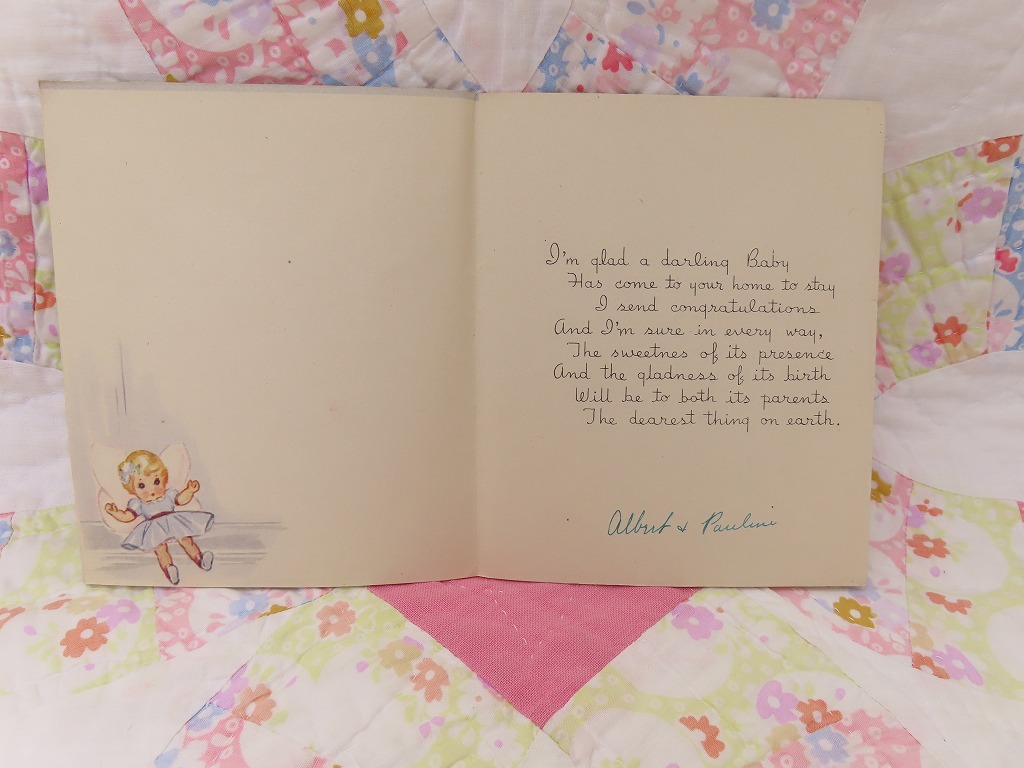 I'm glad a darling Baby
Has come to your home to stay
I send congratulations
And I'm sure in every way,
The sweetnes of its presence
And the gladness of its birth
Will be to both its parents
The dearest thing on earth.
Albert & Pauline